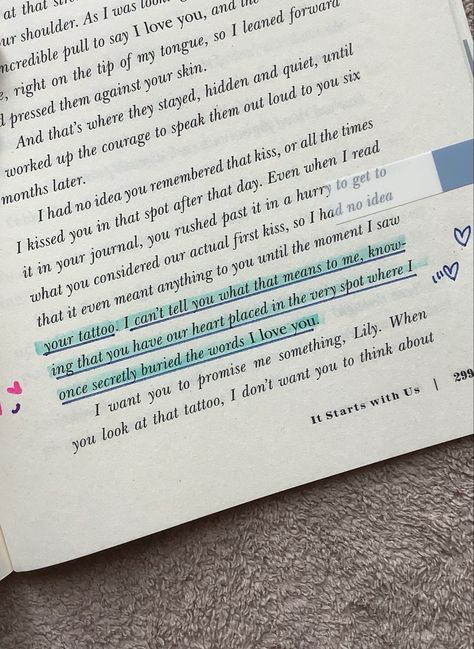 at that
ur shoulder. As I was
ncredible pull to say I love you, and
, right on the tip of my tongue, so I leaned forward
pressed them against your skin.
And that's where they stayed, hidden and quiet, until
worked up the courage to speak them out loud to you six
months later.
I had no idea you remembered that kiss, or all the times
I kissed you in that spot after that day. Even when I read
it in your journal, you rushed past it in a hurry to get to
what you considered our actual first kiss, so I had no idea
that it even meant anything to you until the moment I saw
your tattoo. I can't tell you what that means to me, know-
ing that you have our heart placed in the very spot where I
once secretly buried the words I love you.
I want you to promise me something, Lily. When
you look at that tattoo, I don't want you to think about
It Starts with Us | 299